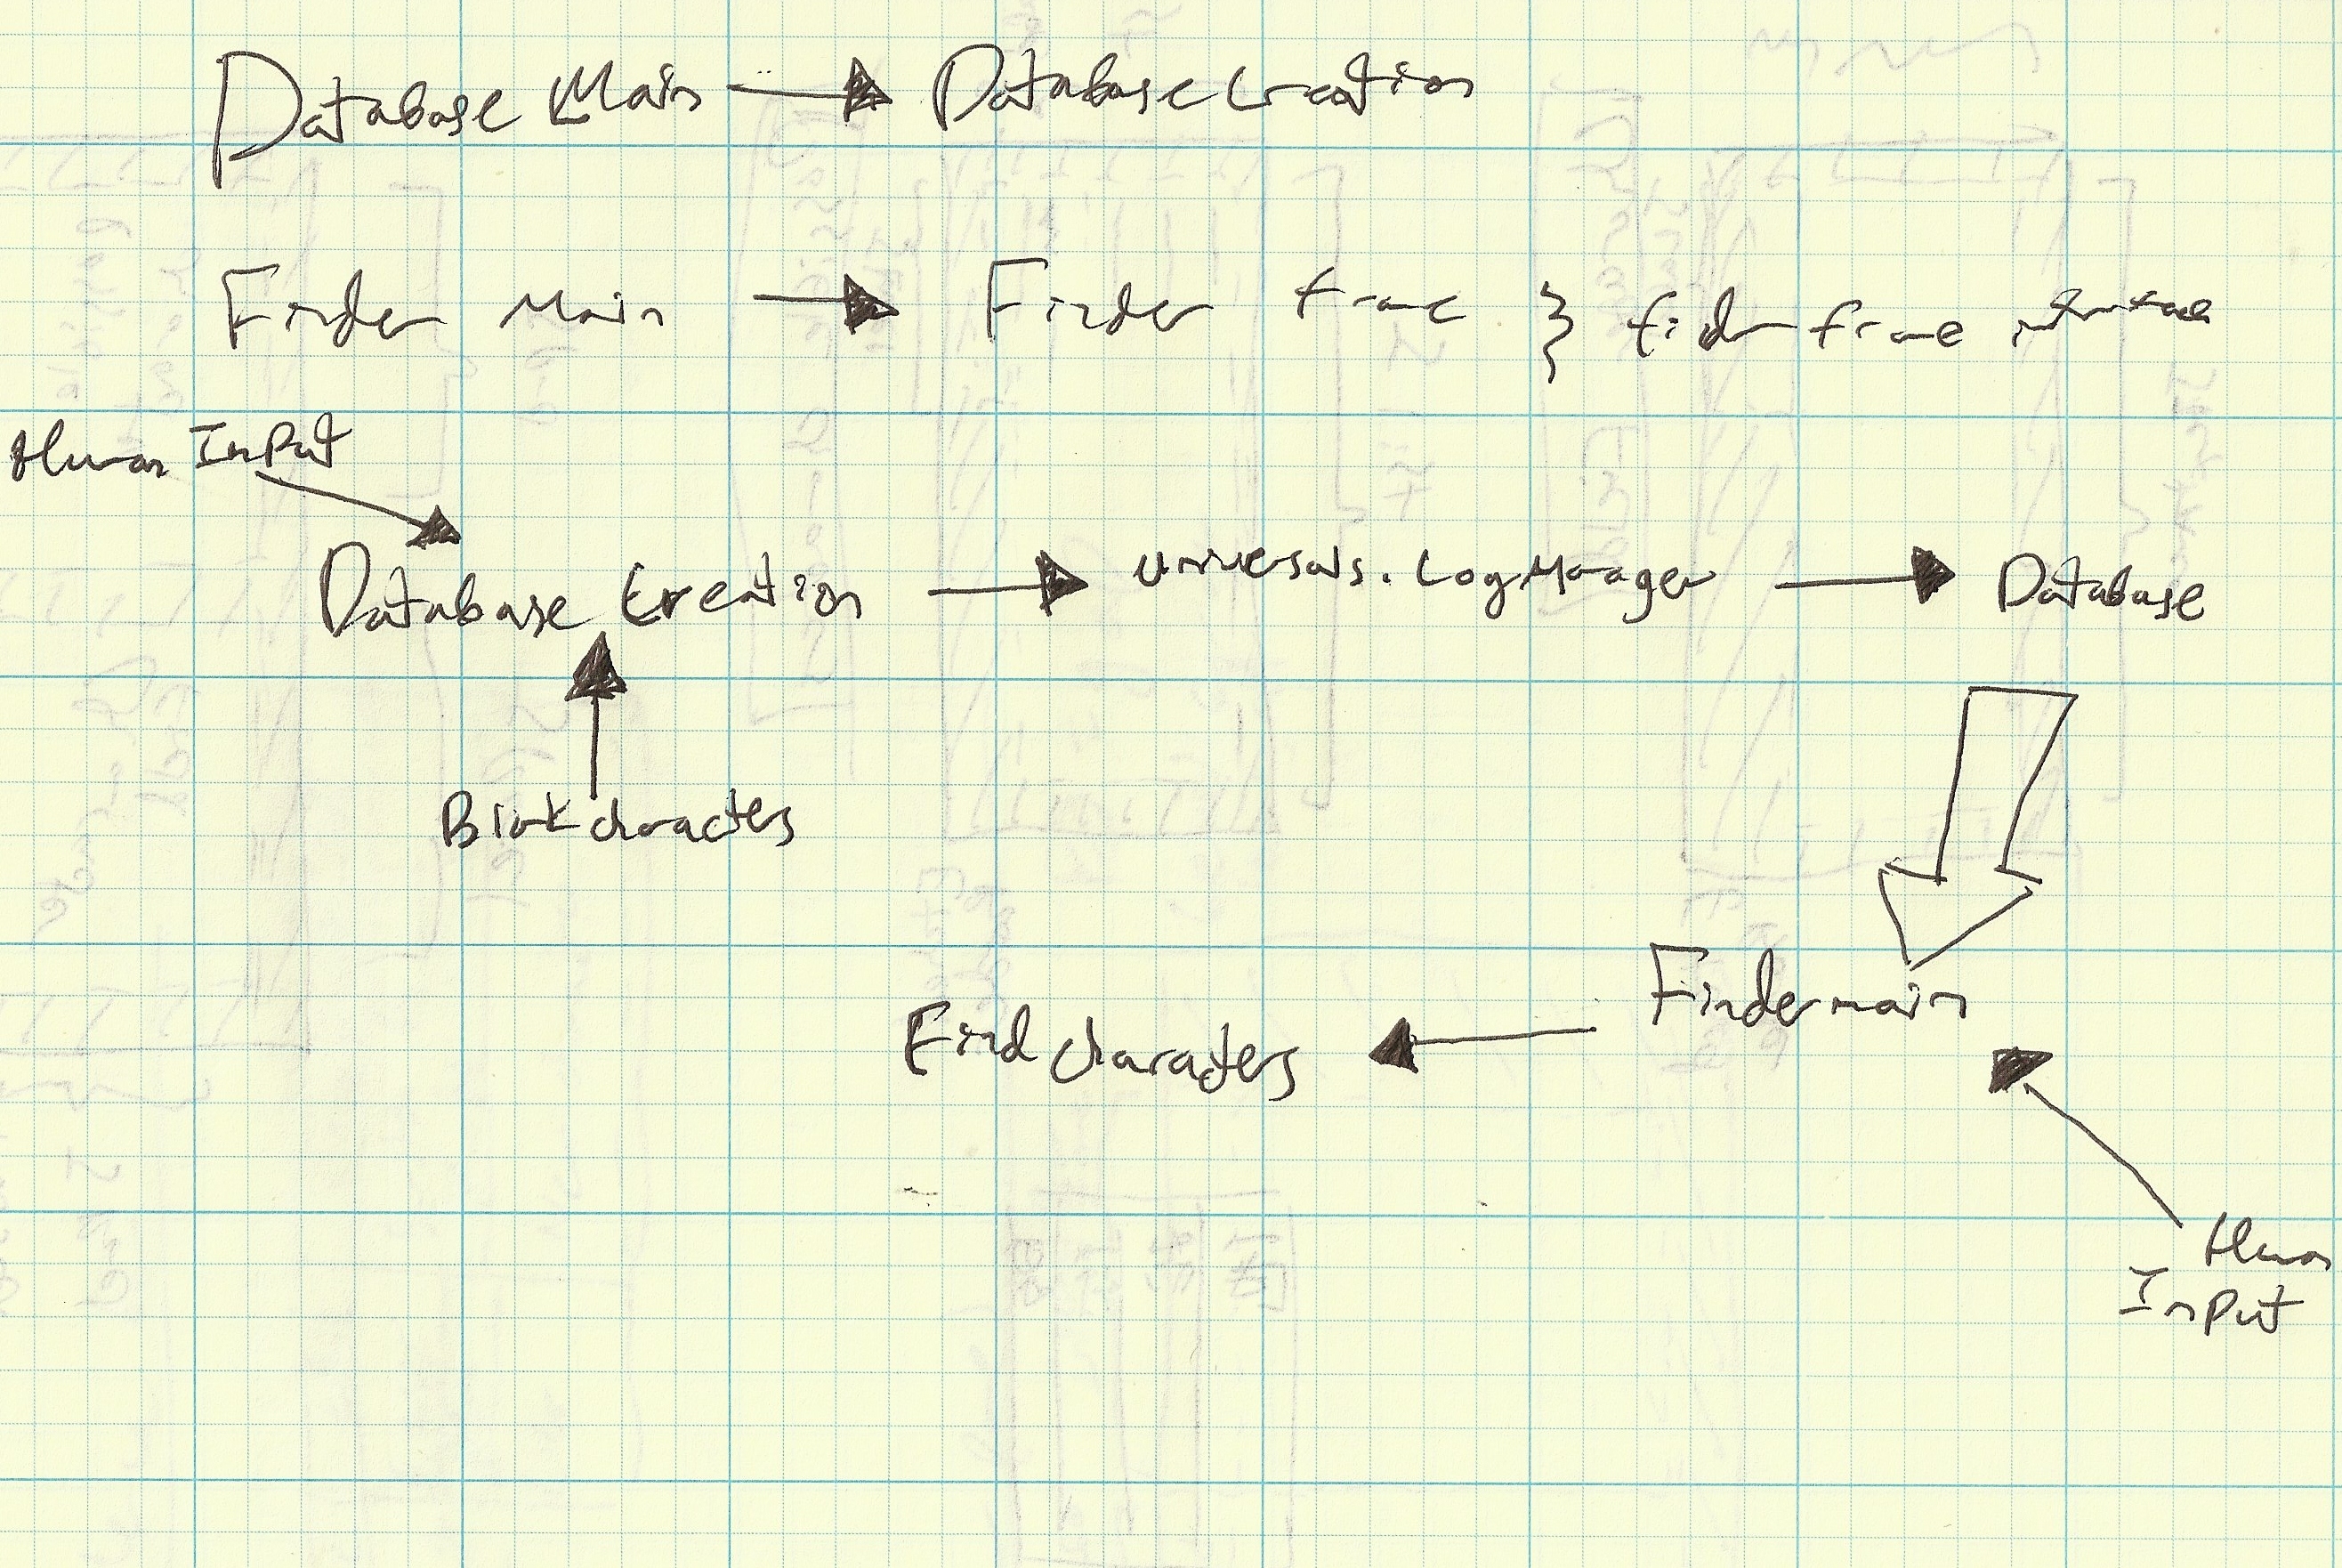 Database Main → Database Creation
Finder Main → Finder frame } finder frame interface
Human Input
Database Creation → universals.LogManager → Database
Blink characters
Find characters ← Finder main
Human
Input